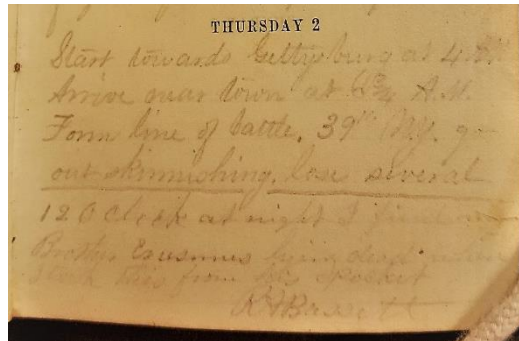 THURSDAY 2
Start towards Gettysburg at 4
Arrive near town at A.M.
Form line of battle. 39th N.Y. go
out skirmishing. lose several
12 O Clock at night I find
Brother Erasmus lying dead when
I took this from his pocket
R A Bassett